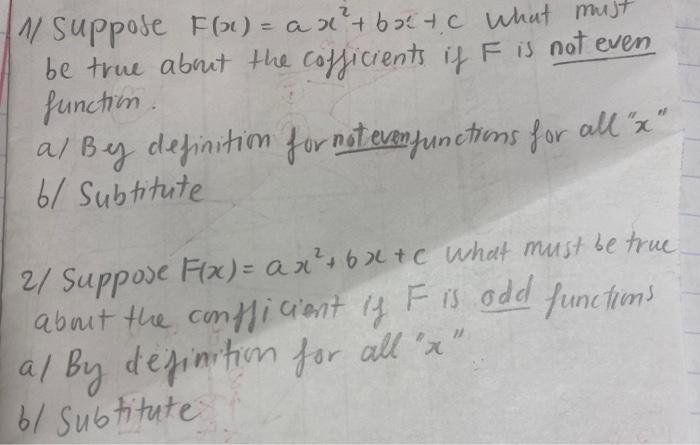 1/ Suppose F(x) = ax² + bx + c What must
be true about the cofficients if F is not even
function.
a/ By definition for not even functions for all "x"
b/ Subtitute
2/ Suppose F(x) = ax² + bx + c What must be true
about the confficient if F is odd functions
a/ By definition for all "x"
b/ Subtitute